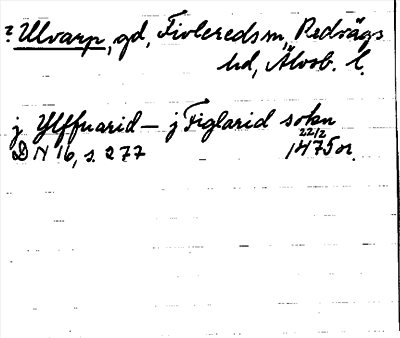 ? Ulvarp, gd, Fivlereds sn, Redvägs
hd, Älvsb. l.
j Ylffuarid – j Figlarid sokn
22/2
DN 16, s. 277 1475 or.